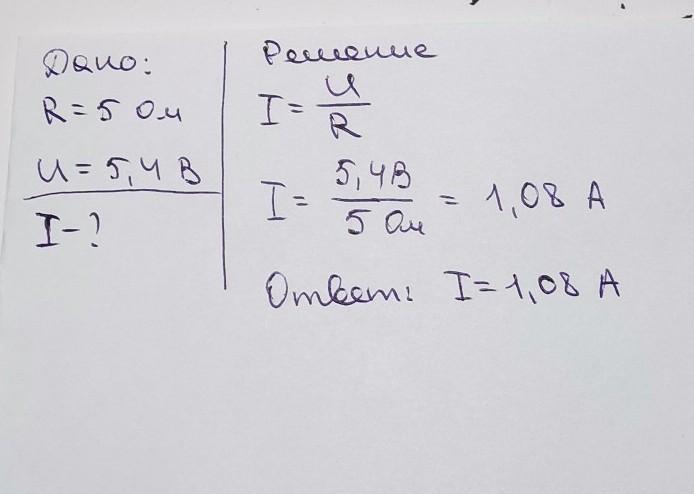 Дано:
R = 5 Ом
U = 5,4 В
I - ?
Решение
I = U/R
I = 5,4В/5 Ом = 1,08 А
Ответ: I = 1,08 А